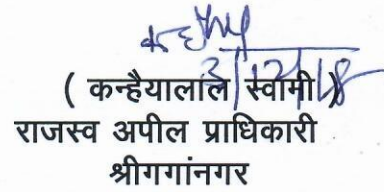 3/12/18
( कन्हैयालाल स्वामी )
राजस्व अपील प्राधिकारी
श्रीगगांनगर